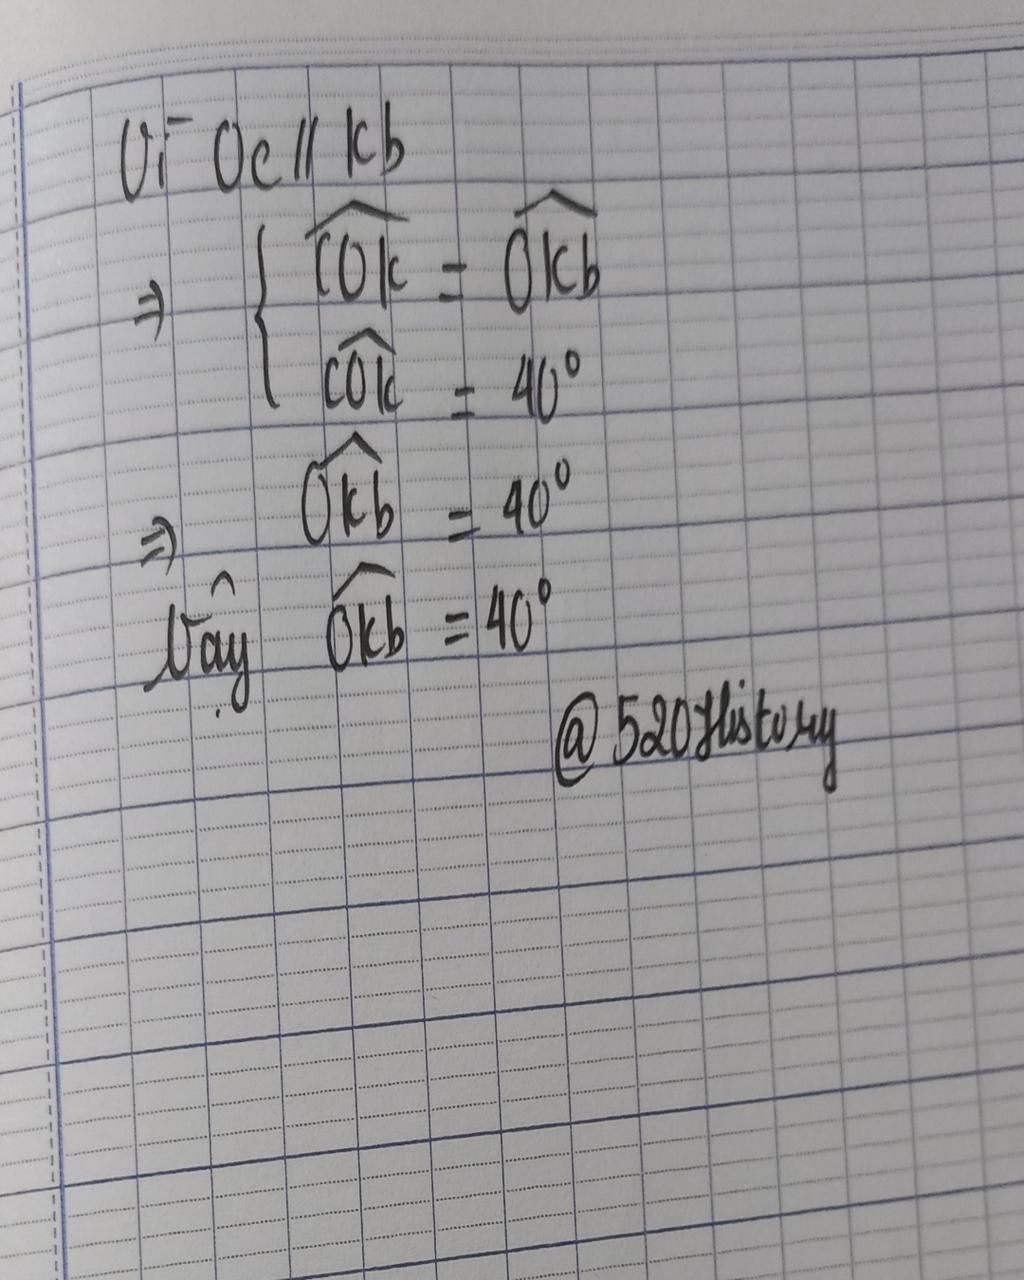 Vì Oc // Kb
⇒ { \widehat{cOK} = \widehat{OKb}
\widehat{cOK} = 40°
⇒ \widehat{OKb} = 40°
Vậy \widehat{OKb} = 40°
@520History